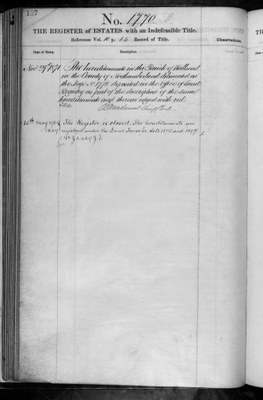 127
No. 1770
THE REGISTER of ESTATES with an Indefeasible Title.
Reference Vol. Record of Title.
Date of Entry.
Description.
Observations.
Nov 29th 1871 The hereditaments in the Parish of
in the County of Northumberland delineated on
the Map No 1770 deposited in the Office of Land
Registry as part of the description of the same
hereditaments and thereon edged with red
10th May 1904 The Register is closed. The hereditaments are
registered under the Land Transfer Acts 1875 and 1897